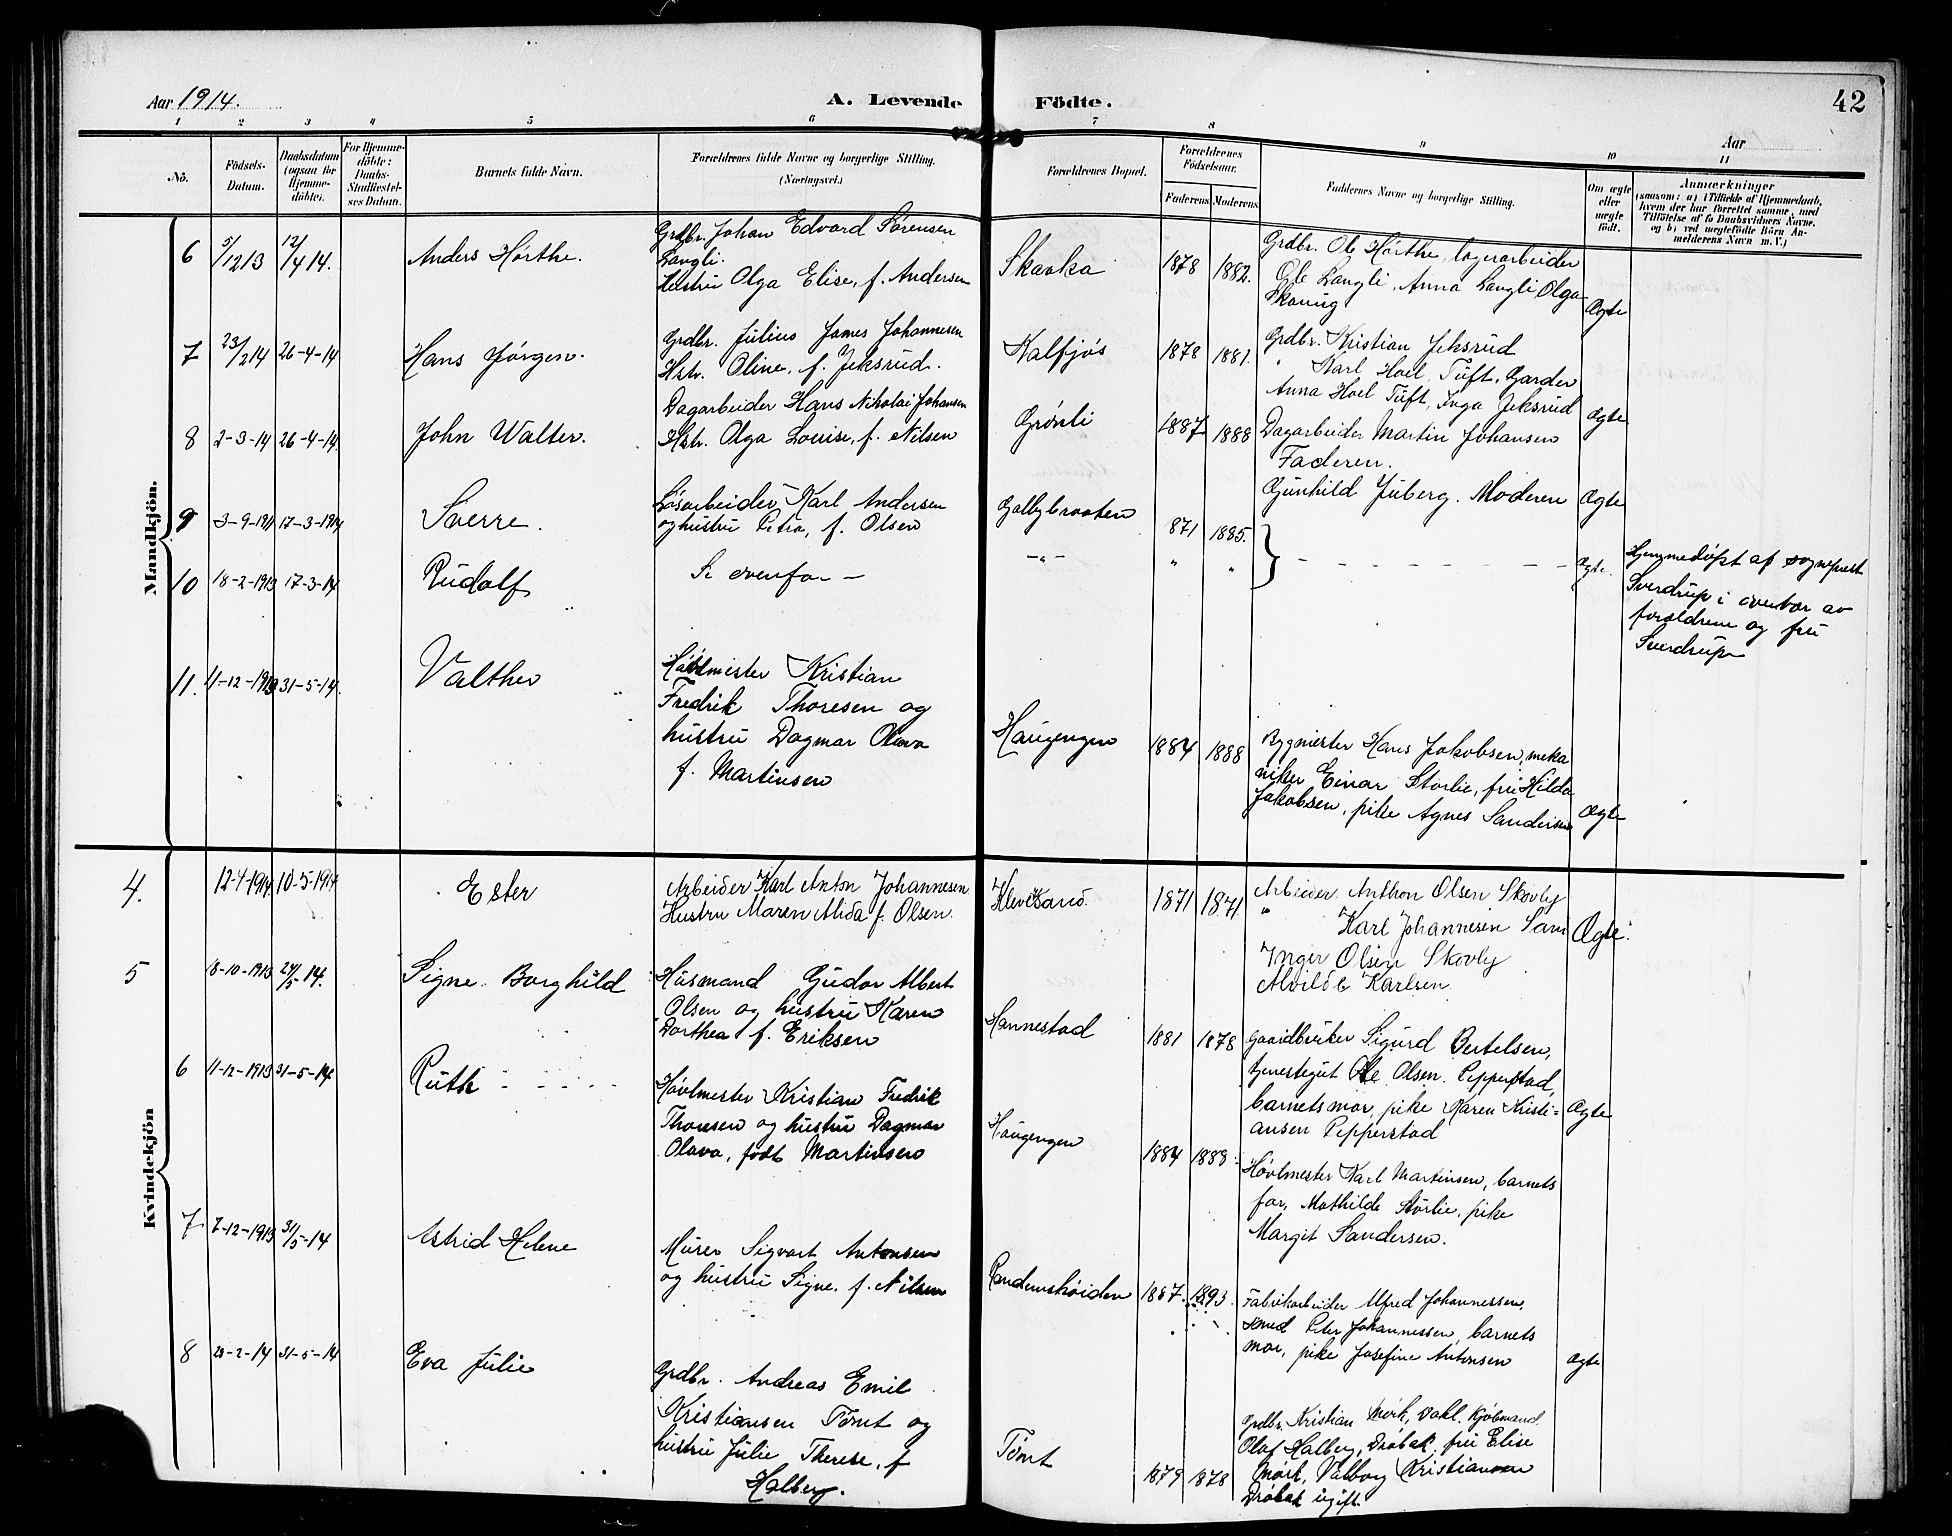 Aar 1914.
A. Levende Födte.
42
Aar
1 2 3 4 5 6 7 8 9 10 11
Nô.
Födsels-
Datum.
Daabsdatum
(ogsaa för
Hjemme-
döbte).
For Hjemme-
döbte:
Daabs-
Stadfæstel-
ses Datum.
Barnets fulde Navn.
Forældrenes fulde Navne og borgerlige Stilling.
(Næringsvei.)
Forældrenes Bopæl.
Forældrenes
Födselsaar.
Faderens Moderens
Faddernes Navne og borgerlige Stilling.
Om ægte
eller
uægte
födt.
Anmærkninger
(saasom: a) i Tilfælde af Hjemmedaab,
hvem der har forrettet samme, med
Tilföielse af to Daabsvidners Navne,
og b) ved uægtefödte Börn An-
melderens Navn m. V.)
Mandkjön.
6 5/12 13 12/4 14. Anders Hörthe.
Grdbr. Johan Edvard Sørensen
Langli.
Hustru Olga Elise, f. Andersen
Skavka 1878 1882.
Grdbr. Ole Hörthe, lagerarbeider
Ole Langli, Anna Langli Olga
Skanug
Ægte
7 23/2 14 26-4-14 Hans Jörgen.
Grdbr. Julius James Johannesen
Hstr. Oline, f. Jeksrud.
Kalfjös 1878 1881.
Grdbr. Kristian Jeksrud
" Karl Hoel, Tuft, Garder
Anna Hoel Tuft, Inga Jeksrud
Ægte
8 2-3-14 26-4-14. John Walter.
Dagarbeider Hans Nikolai Johansen
Hstr. Olga Louise, f. Nilsen
Grönli 1887 1888
Dagarbeider Martin Johansen
Faderen.
Gunhild Juberg. Moderen
Ægte
9 3-9-1911 17-3-1914 Sverre.
Løsarbeider Karl Andersen
og hustru Petra, f. Olsen
Galbybraaten 871 1885.
10 18-2-1913 17-3-14 Rudolf
Se ovenfor —
—"— " "
Ægte.
Hjemmedöpt af sogneprest
Sverdrup i overvær av
forældrene og fru
Sverdrup
11. 11-12-1913 31-5-14. Valther
Høvlmester Kristian
Fredrik Thoresen og
hustru Dagmar Olava
f. Martinsen
Haugengen 1884 1888
Bygmester Hans Jakobsen, meka
niker Einar Storlie, fru Hilda
Jakobsen, pike Agnes Sandersen
Ægte
Kvindekjön
4. 12-4-1914. 10-5-1914 Ester
Arbeider Karl Anton Johannesen
Hustru Maren Alida f. Olsen.
Klevesand. 1871 1871
Arbeider Anthon Olsen Skovly
" Karl Johannesen Sand
Inger Olsen Skovly
Alvilde Karlsen
Ægte.
5 18-10-1913 24/5-14. Signe Borghild
Husmand Gudor Albert
Olsen og hustru Karen
Dorthea f. Eriksen
Hannestad 1881 1878
Gaardbruker Sigurd Bertelsen,
tjenestegut Ole Olsen. Pepperstad,
barnets mor, pike Karen Kristi=
ansen Pepperstad
Ægte
6 11-12-1913 31-5-14 Ruth - - - - -
Høvlmester Kristian Fredrik
Thoresen og hustru Dagmar
Olava, født Martinsen
Haugengen 1884 1888
Høvlmester Karl Martinsen, barnets
far, Mathilde Storlie, pike
Margit Sandersen.
7 7-12-1913 31/5-14 Astrid Helene
Murer Sigvart Antonsen
og hustru Signe. f. Nilsen
1887. 1893.
Fabrikarbeider Alfred Johannessen,
smed Peter Johannessen, barnets
mor, pike Josefine Antonsen
Ægte
8 20-2-14 31-5-14 Eva Julie
Grdbr. Andreas Emil
Kristiansen Tomt og
hustru Julie Therese, f
Halberg.
Tomt 1879 1878
Grdbr. Kristian Mörk, Dahl. Kjöbmand
Olaf Halberg, Dröbak, fru Elise
Mörk, Valborg Kristiansen
Dröbak ugift.